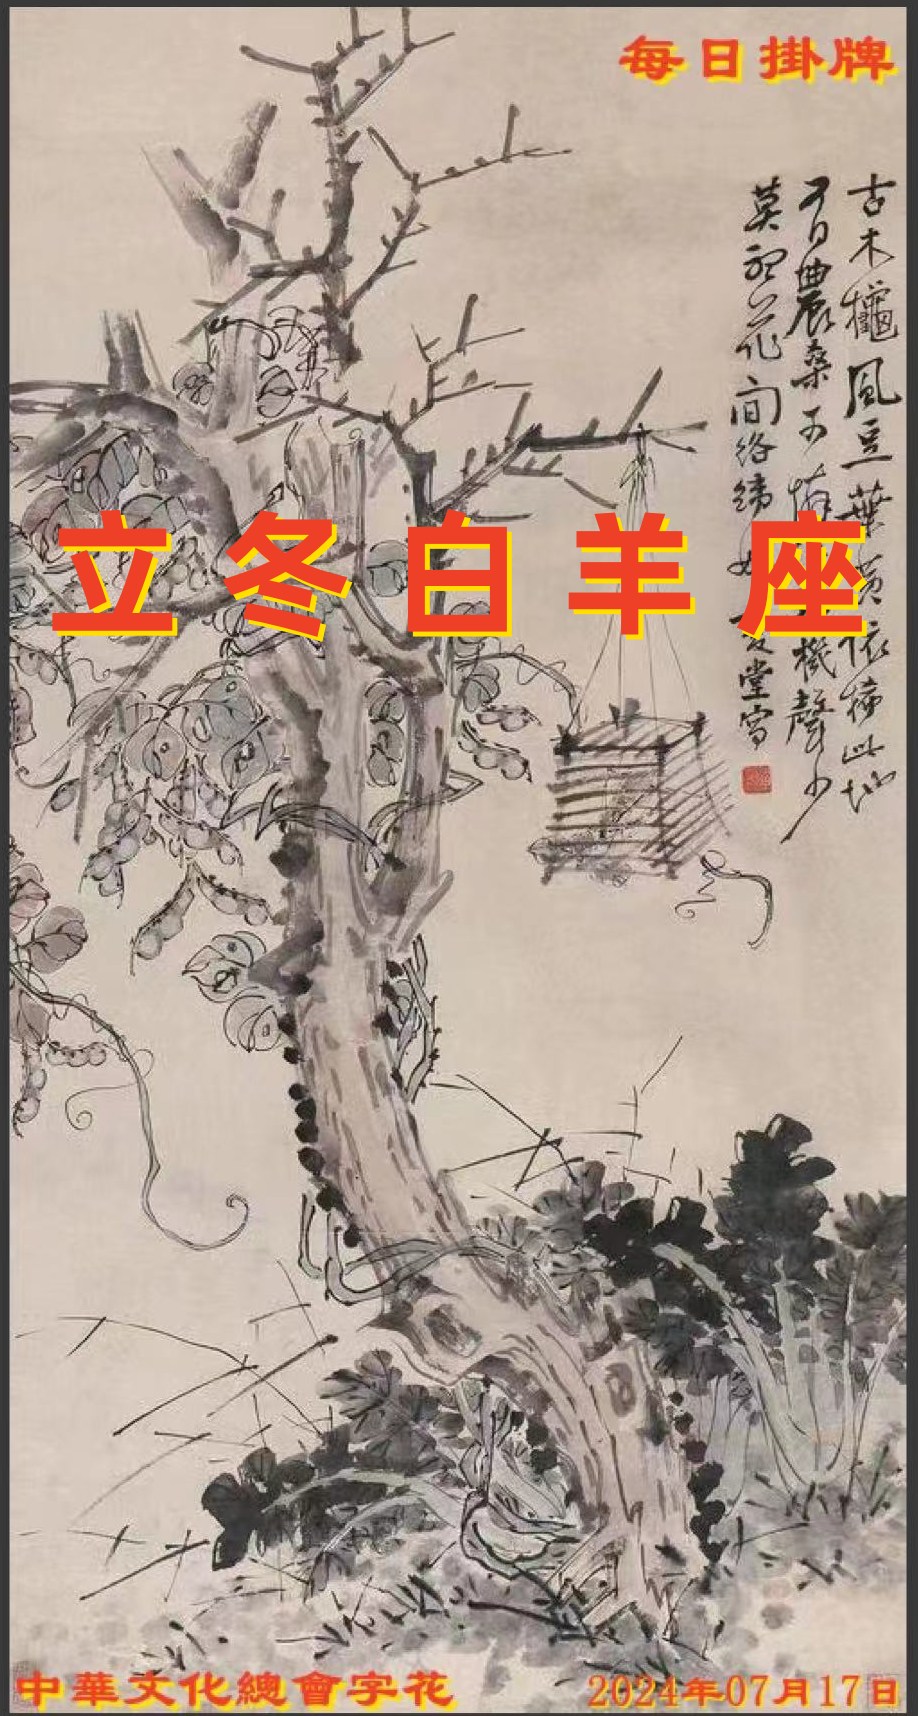 每日掛牌
古木風豆葉黃依稀此地
有農桑可機聲少
莫花間絡緯
堂寫
立冬白羊座
中華文化總會字花
2024年07月17日